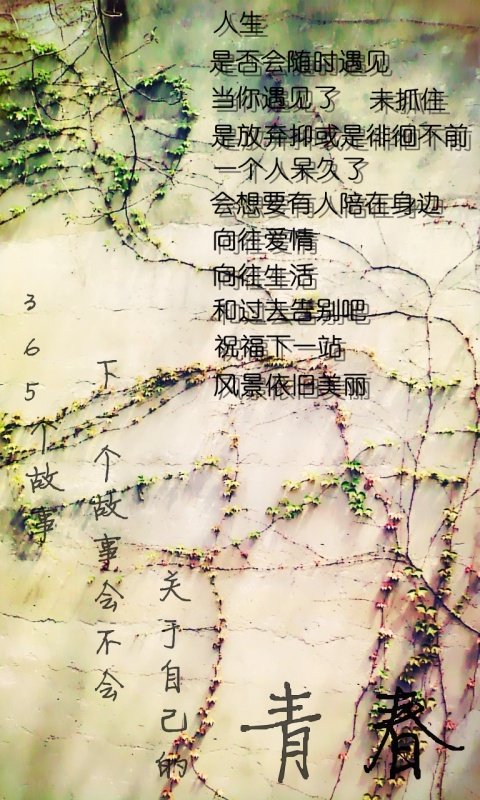 人生
是否会随时遇见
当你遇见了 未抓住
是放弃抑或是徘徊不前
一个人呆久了
会想要有人陪在身边
向往爱情
向往生活
和过去告别吧
祝福下一站
风景依旧美丽
365个故事
下一个故事会不会
关于自己的
青春